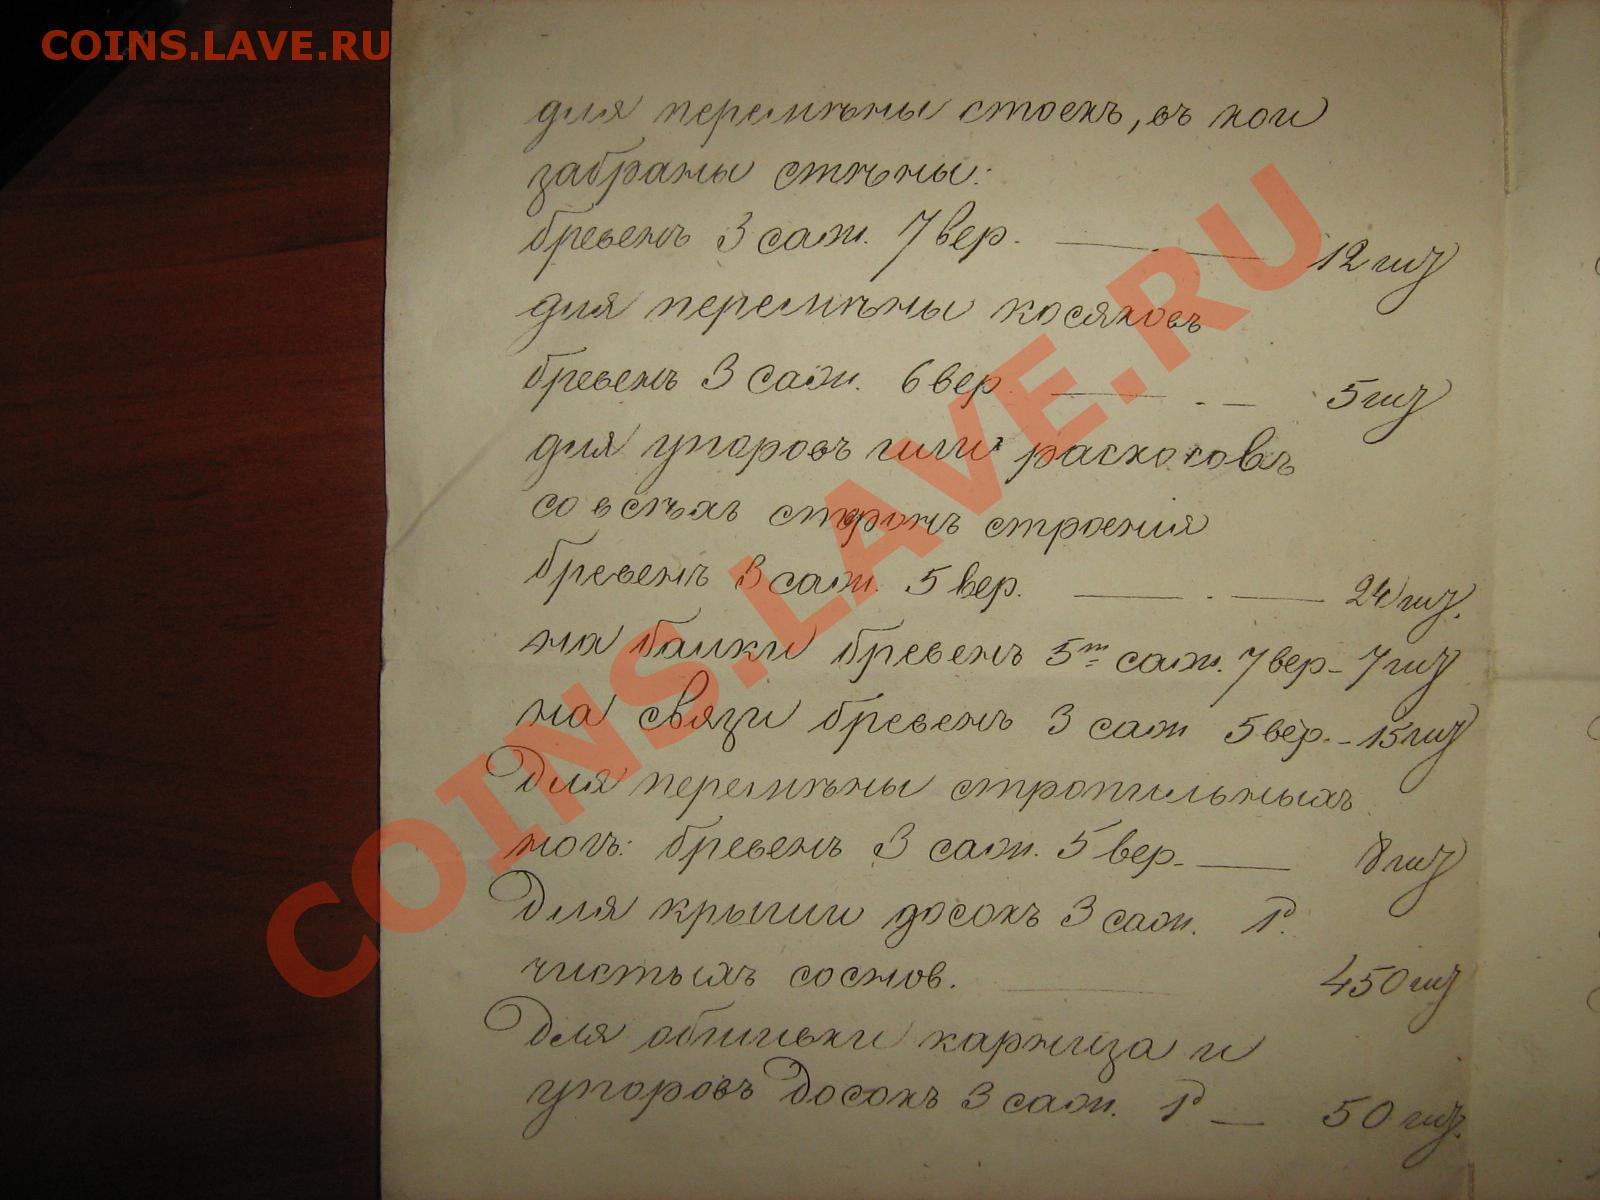 COINS.LAVE.RU
для перемѣны стоекъ, въ кои
забраны стѣны:
бревенъ 3 саж. 7 вер. — . — 12 шт
для перемѣны косяковъ
бревенъ 3 саж. 6 вер — . — 5 шт
для упоровъ или раскосовъ
со всѣхъ сторонъ строенія
бревенъ 3 саж. 5 вер. — . — 24 шт.
на балки бревенъ 5ти саж. 7 вер - 7 шт
на связи бревенъ 3 саж 5 вер. - 15 шт
Для перемѣны стропильныхъ
ногъ: бревенъ 3 саж. 5 вер. — 8 шт
Для крыши досокъ 3 саж.
чистыхъ соснов. — 450 шт
Для обшивки карниза и
упоровъ досокъ 3 саж. — 50 шт.
COINS.LAVE.RU